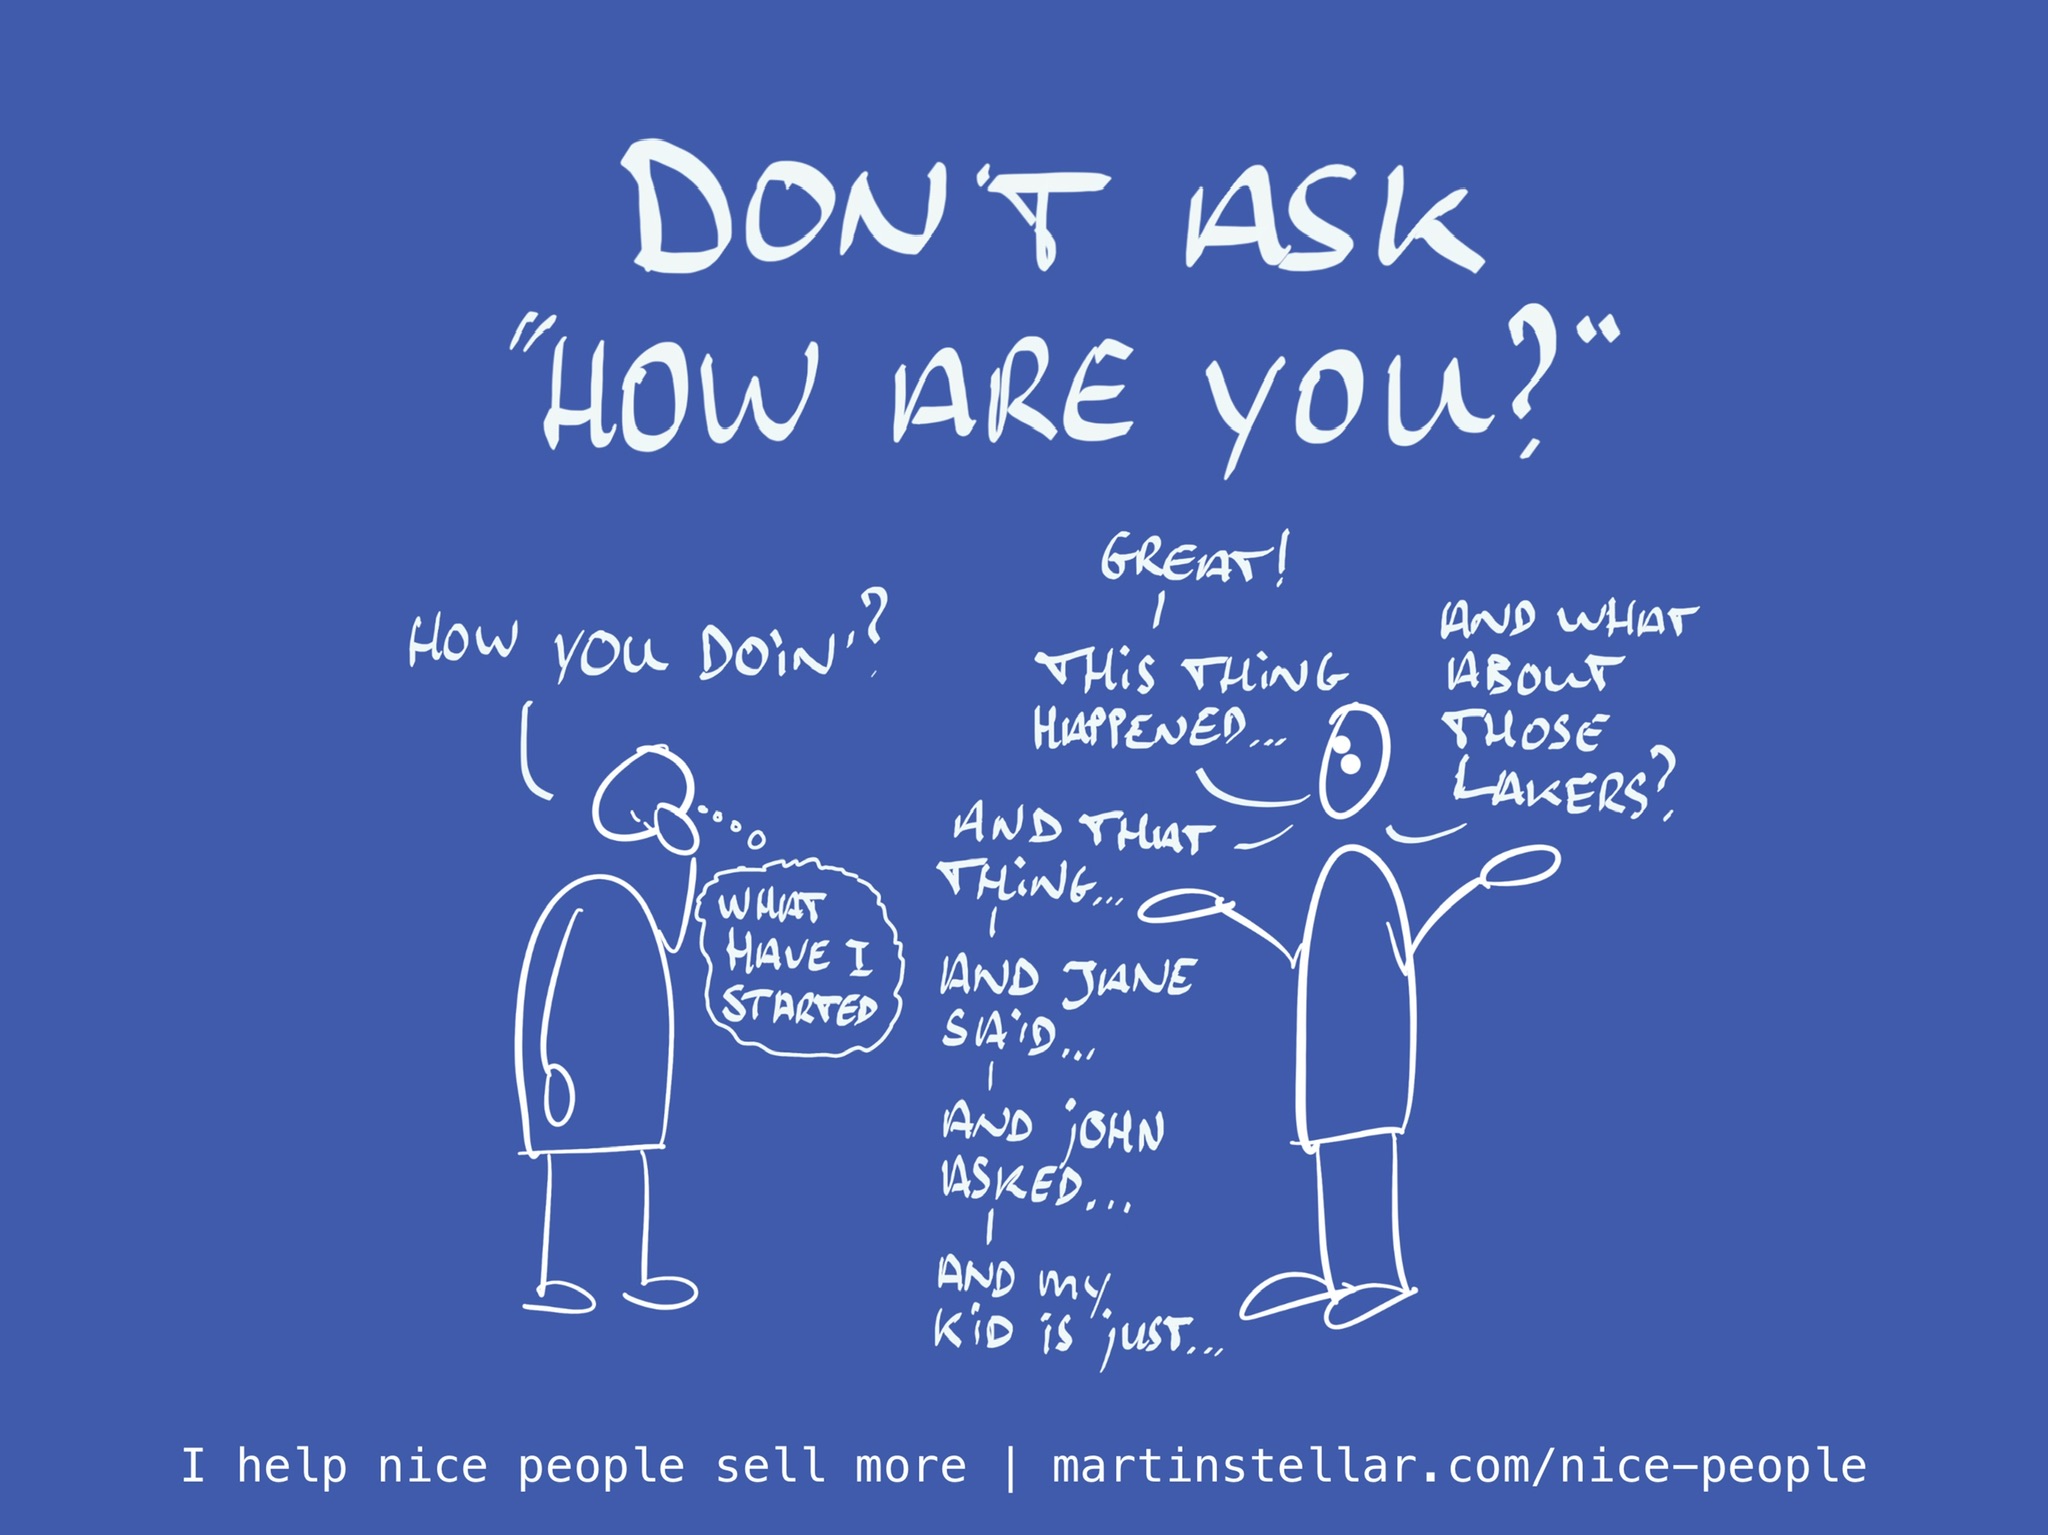 DON'T ASK
"HOW ARE YOU?"
HOW YOU DOIN'?
WHAT
HAVE I
STARTED
GREAT!
THIS THING
HAPPENED...
AND THAT
THING...
AND JANE
SAID...
AND JOHN
ASKED...
AND MY
KID IS JUST...
AND WHAT
ABOUT
THOSE
LAKERS?
I help nice people sell more | martinstellar.com/nice-people